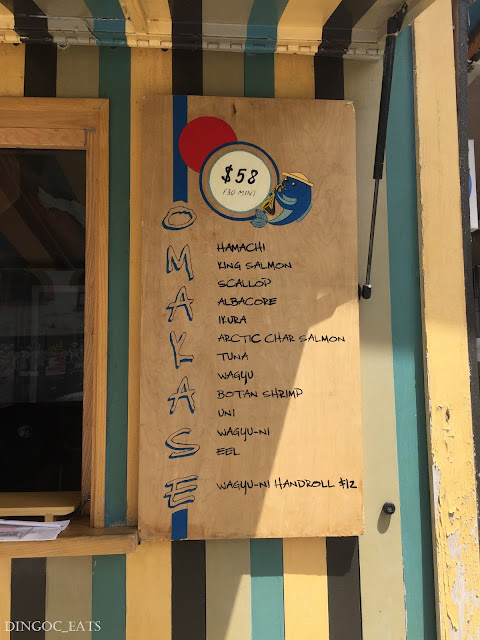 $58
(30 MIN)
OMAKASE
HAMACHI
KING SALMON
SCALLOP
ALBACORE
IKURA
ARCTIC CHAR SALMON
TUNA
WAGYU
BOTAN SHRIMP
UNI
WAGYU-NI
EEL
WAGYU-NI HANDROLL $12
DINGOC_EATS